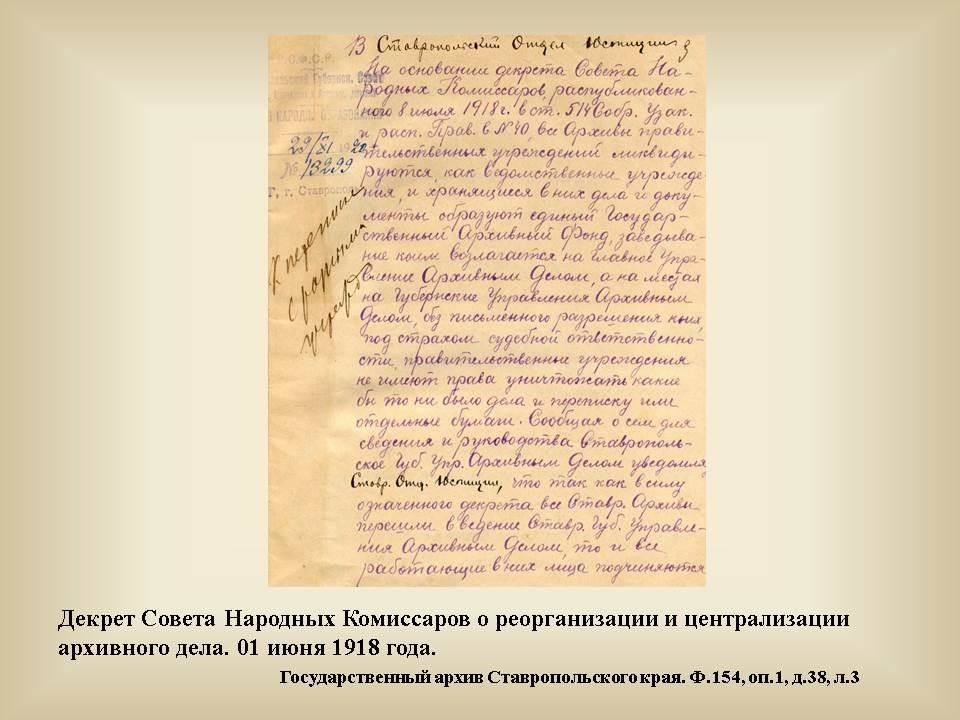 В Ставропольский Отдел Юстиции
На основании декрета Совета На-
родных Комиссаров, распубликован-
ного 8 июля 1918 г. в ст. 514 Собр. Узак.
и расп. Прав. в №40, все Архивы прави-
тельственных учреждений ликвиди-
руются, как ведомственные учрежде-
ния, и хранящиеся в них дела и доку-
менты образуют единый Государ-
ственный Архивный Фонд, заведыва-
ние коим возлагается на Главное Упра-
вление Архивным Делом, а на местах
на Губернские Управления Архивным
Делом, без письменного разрешения коих,
под страхом судебной ответственно-
сти, правительственные учреждения
не имеют права уничтожать какие
бы то ни было дела и переписку или
отдельные бумаги. Сообщая о сем для
сведения и руководства Ставрополь-
ское Губ. Упр. Архивным Делом уведомля
Ставр. Отд. Юстиции, что так как в силу
означенного декрета все Ставр. Архивы
перешли в ведение Ставр. Губ. Управле-
ния Архивным Делом, то и все
работающие в них лица подчиняются
С.Ф.С.Р.
Совет
НАРОДН. ОБРАЗОВАНИЯ
29/XI 1920
№ 13299
г. Ставропо
К переписке
с разными
учрежд
Декрет Совета Народных Комиссаров о реорганизации и централизации
архивного дела. 01 июня 1918 года.
Государственный архив Ставропольского края. Ф.154, оп.1, д.38, л.3